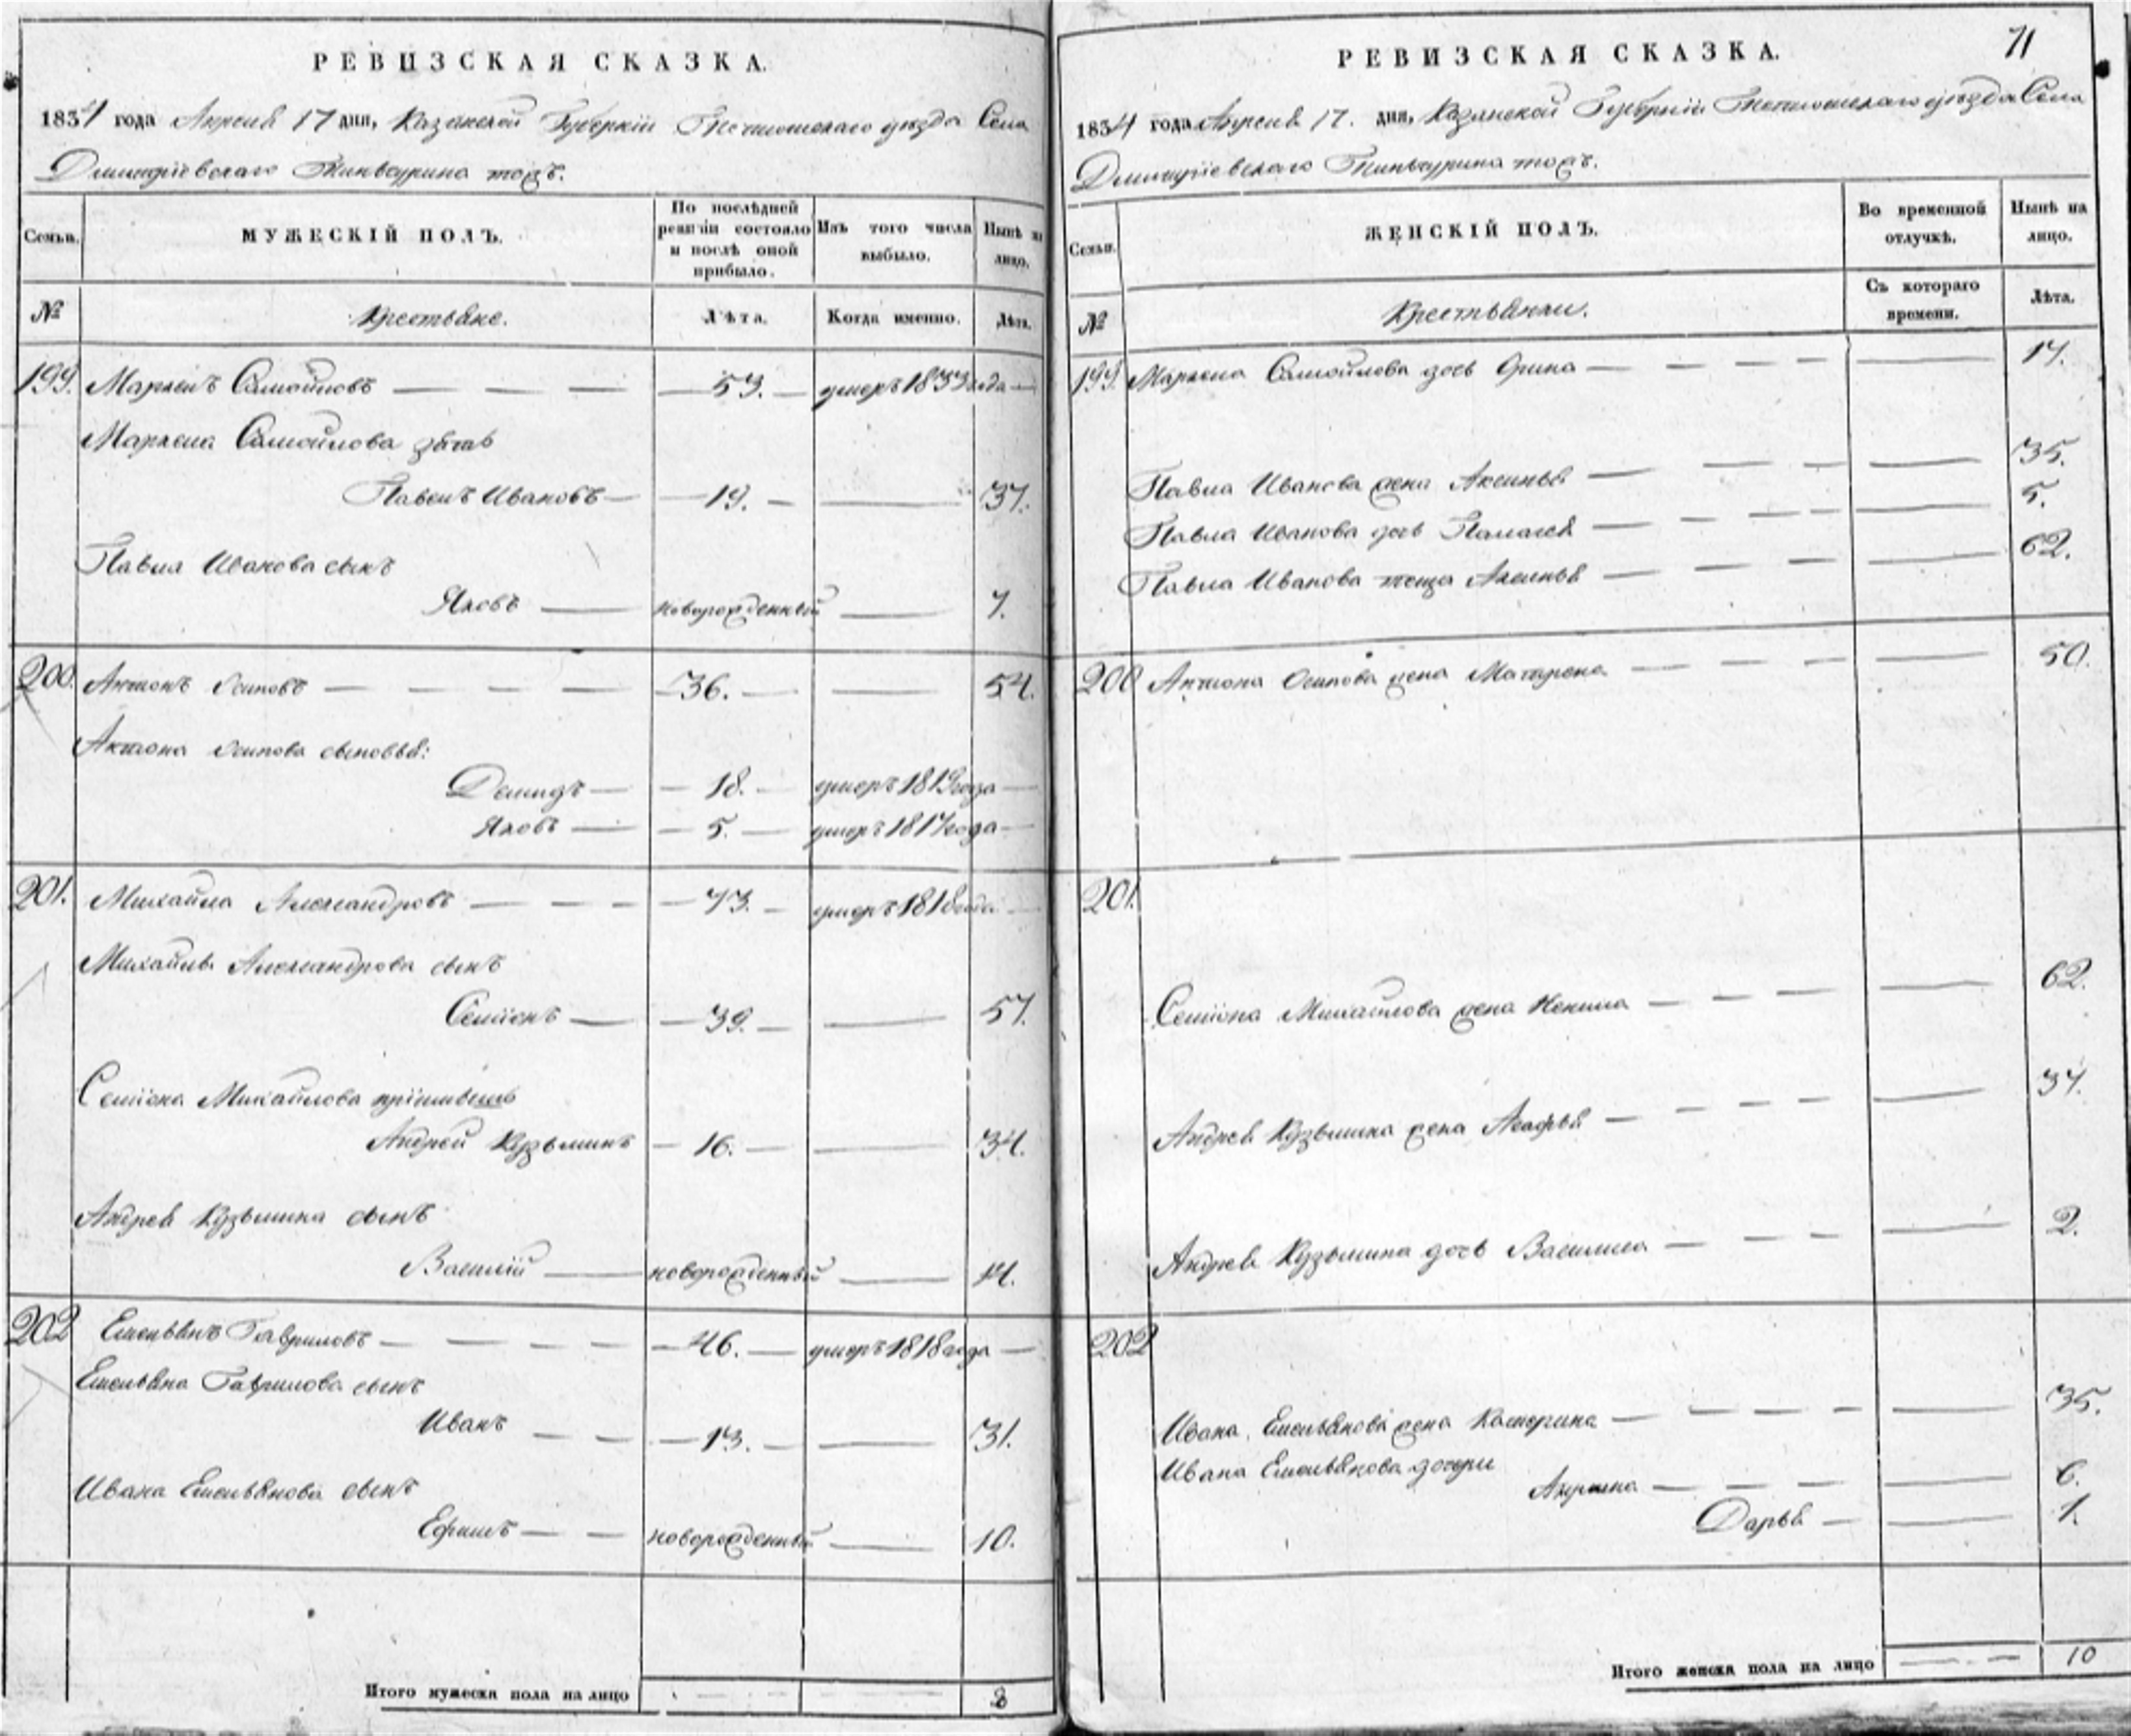 РЕВИЗСКАЯ СКАЗКА.
1834 года Апреля 17 дня, Казанской Губернiи Тетюшскаго уѣзда Села
Димитрiевскаго тожъ.
Семьи.
МУЖЕСКIЙ ПОЛЪ.
По послѣдней ревизiи состояло и послѣ оной прибыло.
Изъ того числа выбыло.
Нынѣ на лицо.
№
Крестьяне.
Лѣта.
Когда именно.
Лѣта.
199. Маркелъ Самойловъ 53. умеръ 1833 года
Маркела Самойлова зять
Павелъ Ивановъ 19. 37.
Павла Иванова сынъ
Яковъ новорожденный 7.
200. Антонъ Осиповъ 36. 54.
Антона Осипова сыновья:
Демидъ 18. умеръ 1819 года
Яковъ 5. умеръ 1817 года
201. Михайла Александровъ 73. умеръ 1818 года
Михайлы Александрова сынъ
Семiонъ 39. 57.
Семiона Михайлова прiимышъ
Андрей Кузьминъ 16. 34.
Андрея Кузьмина сынъ
Василiй новорожденный 14.
202 Емельянъ Гавриловъ 46. умеръ 1818 года
Емельяна Гаврилова сынъ
Иванъ 13. 31.
Ивана Емельянова сынъ
Ефимъ новорожденный 10.
Итого мужеска пола на лицо 8
71
РЕВИЗСКАЯ СКАЗКА.
1834 года Апреля 17. дня, Казанской Губернiи Тетюшскаго уѣзда Села
Димитрiевскаго тожъ.
Семьи.
ЖЕНСКIЙ ПОЛЪ.
Во временной отлучкѣ.
Нынѣ на лицо.
№
Крестьянки.
Съ котораго времени.
Лѣта.
199. Маркела Самойлова дочь Орина 17.
Павла Иванова жена Аксинья 35.
Павла Иванова дочь Палагея 5.
Павла Иванова теща Аксинья 62.
200 Антона Осипова жена Матрена 50.
201.
Семiона Михайлова жена Ненила 62.
Андрея Кузьмина жена Агафья 37.
Андрея Кузьмина дочь Василиса 2.
202
Ивана Емельянова жена Катерина 35.
Ивана Емельянова дочери
6.
Дарья 1.
Итого женска пола на лицо 10